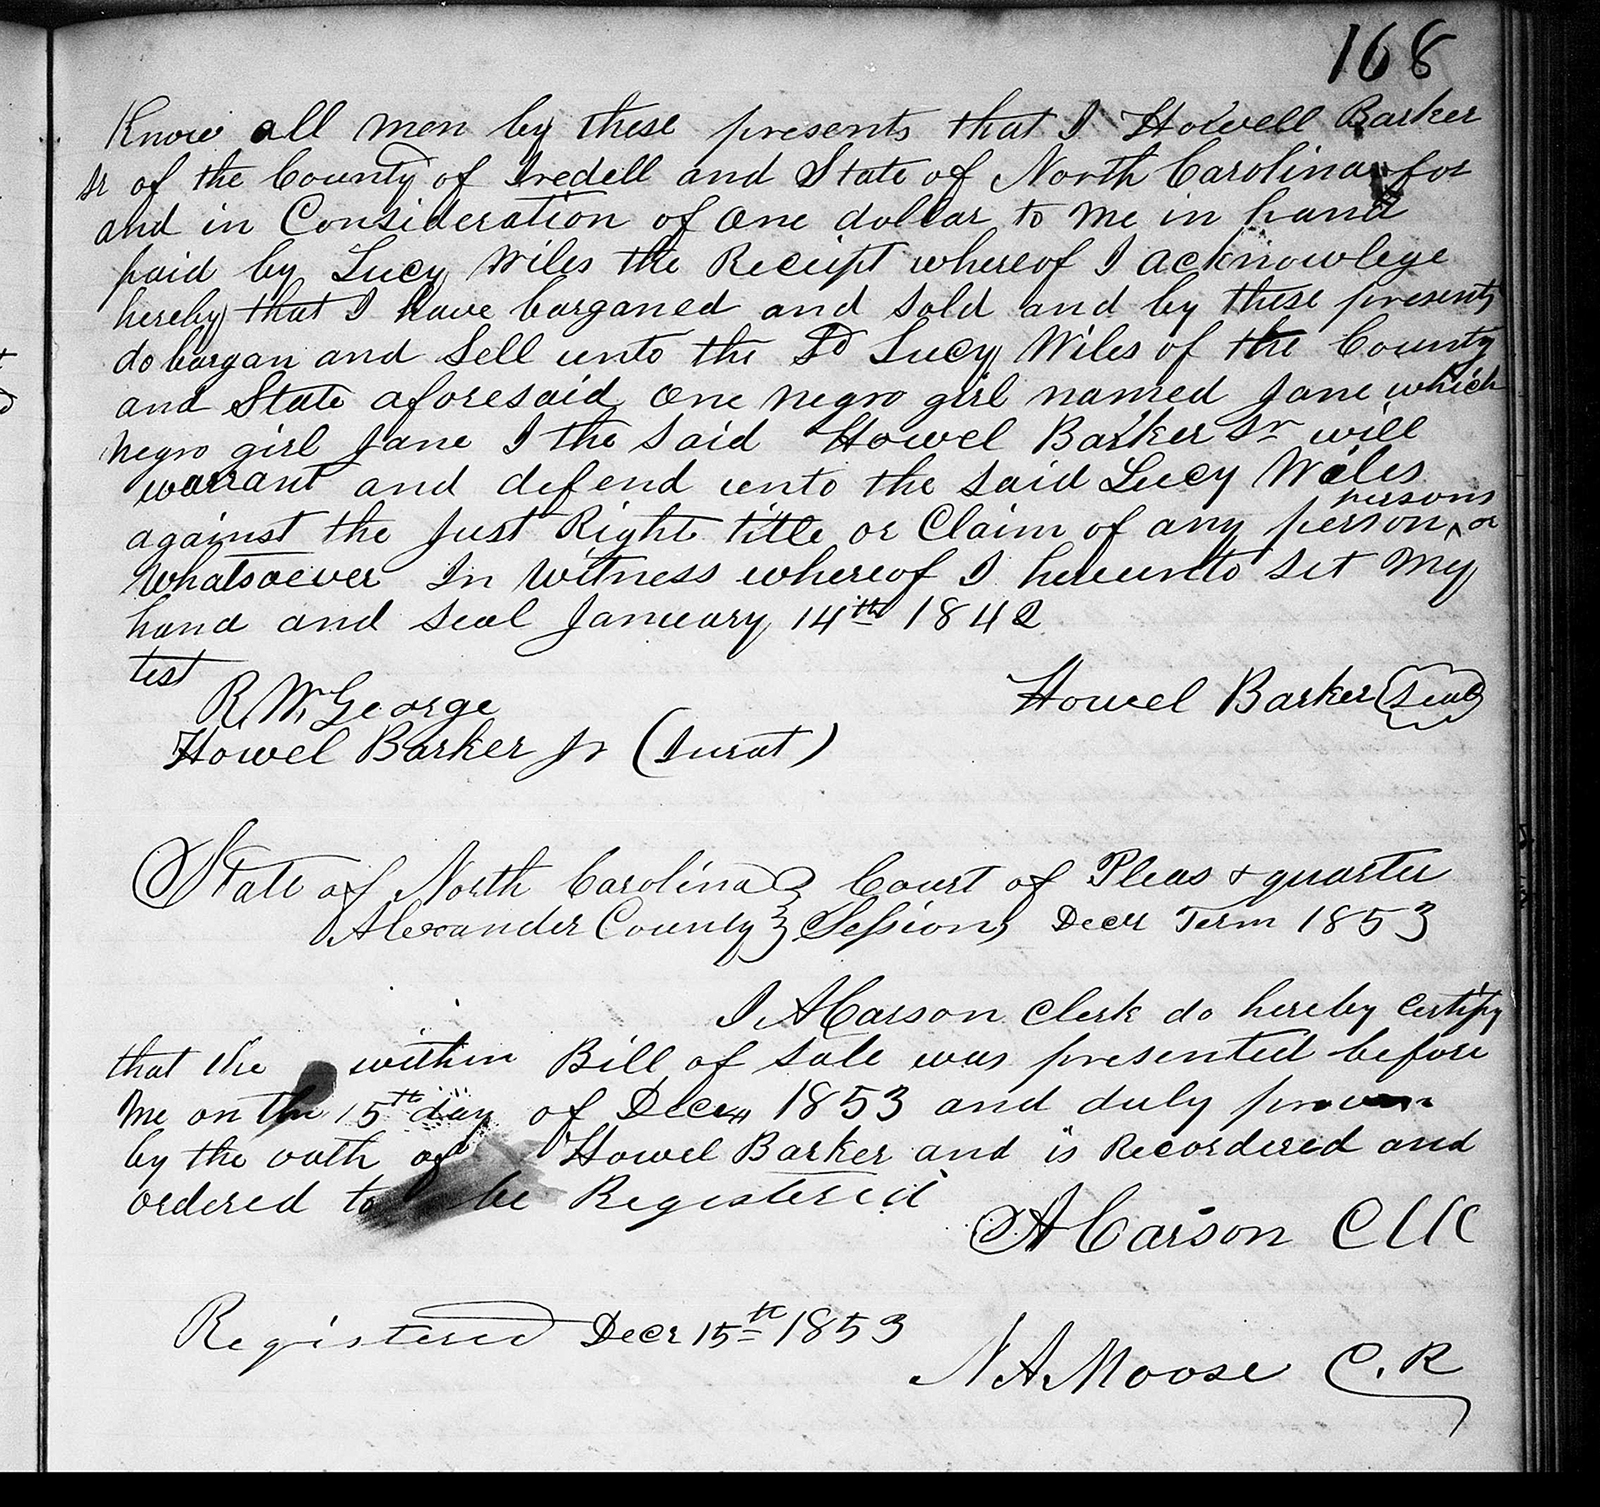 168
Know all men by these presents that I Howell Barker
Sr of the County of Iredell and State of North Carolina for
and in Consideration of one dollar to me in hand
paid by Lucy Wiles the Receipt whereof I acknowlege
hereby that I have barganed and sold and by these presents
do bargan and Sell unto the Sd Lucy Wiles of the County
and State aforesaid one negro girl named Jane which
negro girl Jane I the said Howel Barker Sr will
warrant and defend unto the said Lucy Wiles
against the Just Right title or Claim of any person ^ or persons
Whatsoever In Witness whereof I hereunto set my
hand and seal January 14th 1842
test
R. W. George
Howel Barker (Seal)
Howel Barker Jr (Jurat)
State of North Carolina } Court of Pleas & quarter
Alexander County } Sessions Decr Term 1853
I A Carson Clerk do hereby certify
that the within Bill of sale was presented before
me on the 15th day of Decr 1853 and duly proven
by the oath of Howel Barker and is Recordered and
ordered to be Registered
A Carson CCC
Registered Decr 15th 1853
N A Moose C. R